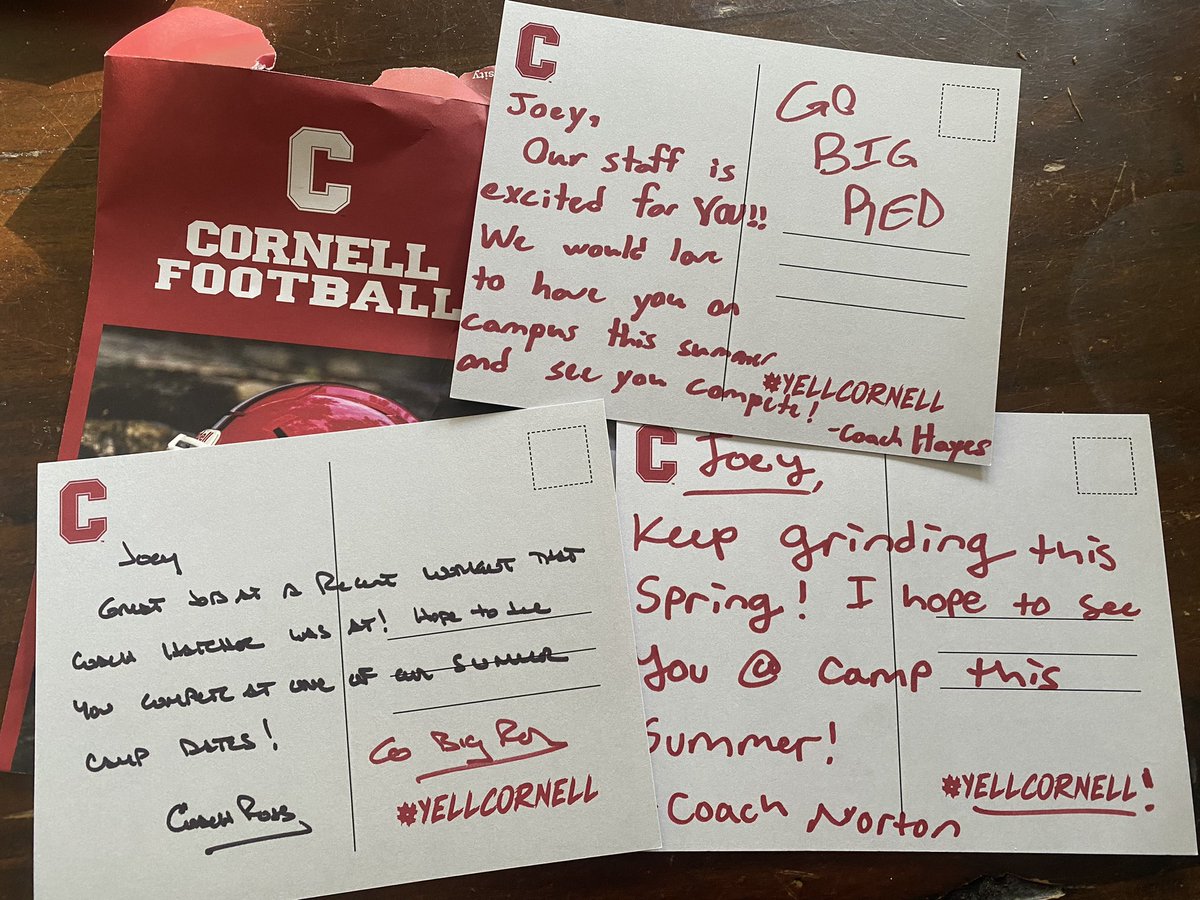 C
CORNELL
FOOTBALL
C
Joey,
Our staff is
excited for YOU!!
We would love
to have you on
campus this summer
and see you compete!
-Coach Hayes
GO
BIG
RED
#YELLCORNELL
C
Joey
GREAT JOB AT A RECENT WORKOUT THAT
COACH HATCHER WAS AT! Hope to see
YOU COMPETE AT ONE OF OUR SUMMER
CAMP DATES!
COACH
Go Big Red
#YELLCORNELL
C
Joey,
Keep grinding this
Spring! I hope to see
You @ camp this
Summer!
Coach Norton
#YELLCORNELL!